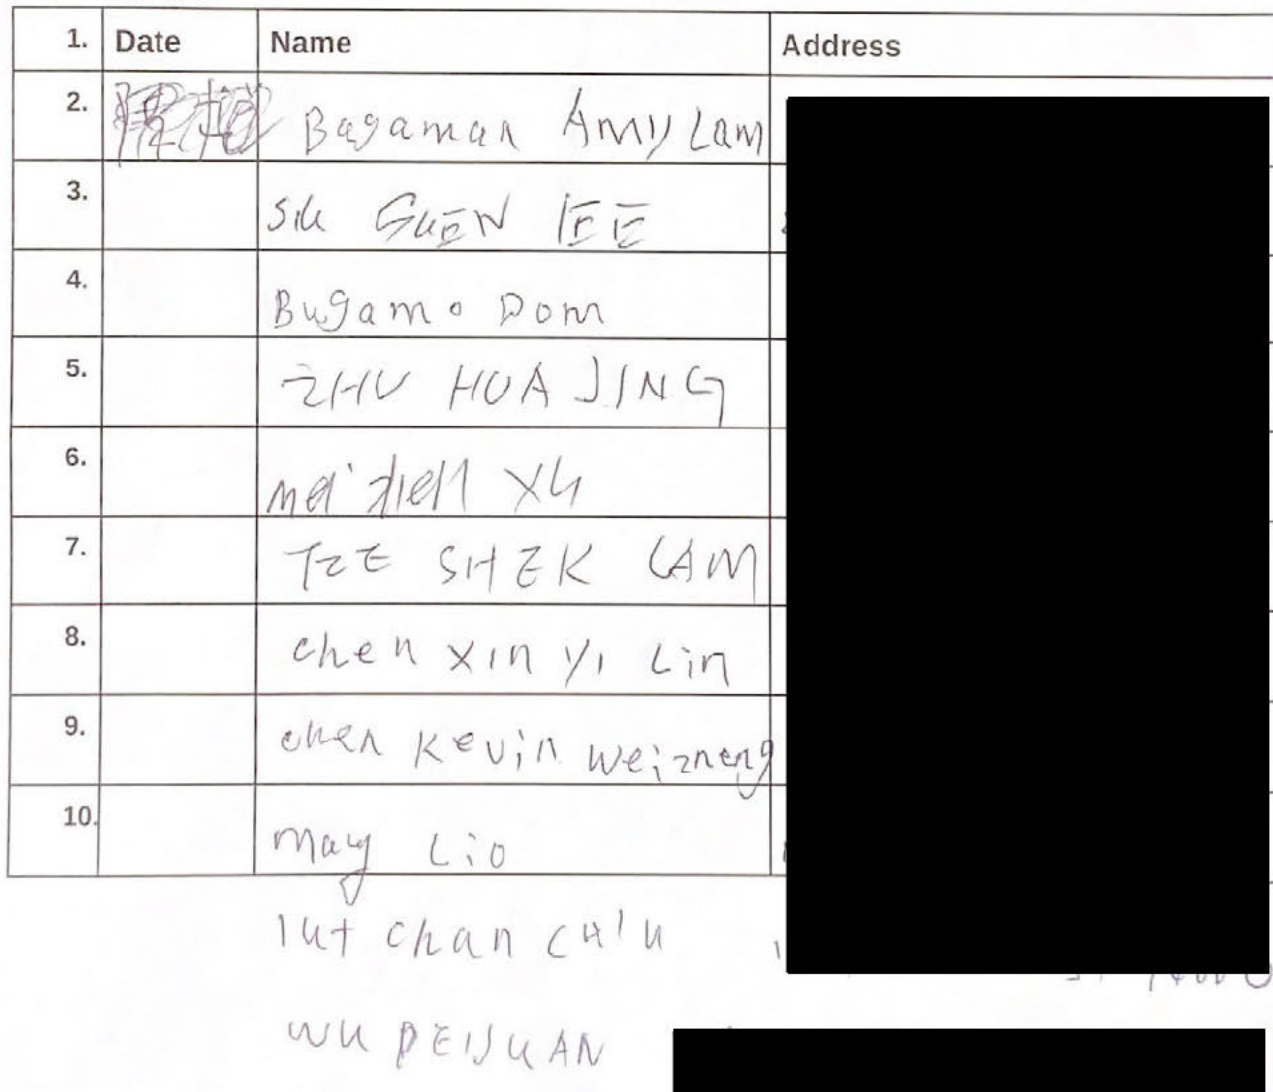 1. Date Name Address
2. Bagaman Amy Lam
3. Sik GUEN IEE
4. Bugamo Dom
5. ZHU HUA JING
6. mei XU
7. TZE SHEK LAM
8. chen xin yi Lin
9. chen Kevin weizneng
10. may Lio
Iut chan CHIU
WU PEIJUAN